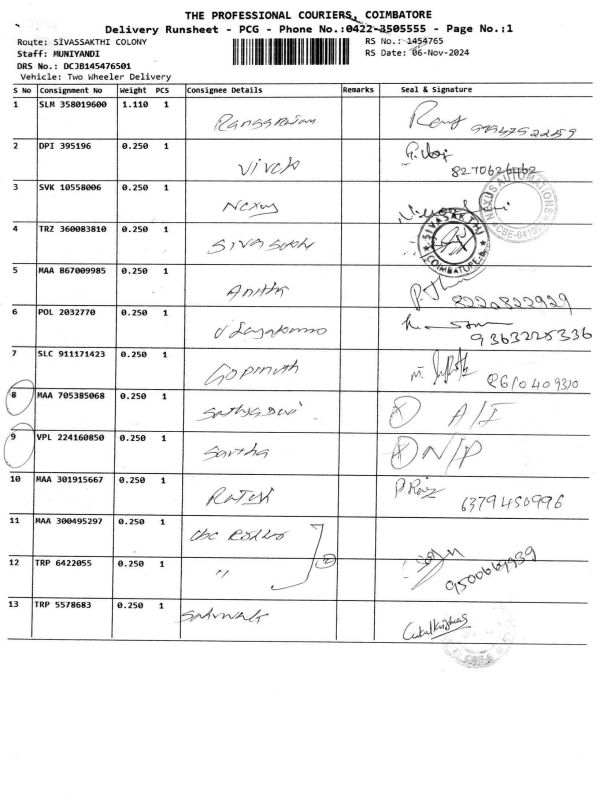 THE PROFESSIONAL COURIERS, COIMBATORE
Delivery Runsheet - PCG - Phone No.:0422-3505555 - Page No.:1
Route: SIVASSAKTHI COLONY RS No.: 1454765
Staff: MUNIYANDI RS Date: 06-Nov-2024
DRS No.: DCJB145476501
Vehicle: Two Wheeler Delivery
S No Consignment No Weight PCS Consignee Details Remarks Seal & Signature
1 SLM 358019600 1.110 1 Rangarajan
2 DPI 395196 0.250 1 Vivek 8270626462
3 SVK 10558006 0.250 1 Nexus NEXUS AUTOMATIONS CBE-641006
4 TRZ 360083810 0.250 1 Sivasakthi SIVASAKTHI COIMBATORE
5 MAA 867009985 0.250 1 Anitha 8220822929
6 POL 2032770 0.250 1 9363228336
7 SLC 911171423 0.250 1 Gopinath 8610409310
8 MAA 705385068 0.250 1 Sathyadevi X A/I
9 VPL 224160850 0.250 1 X N/P
10 MAA 301915667 0.250 1 Rajesh 6379450996
11 MAA 300495297 0.250 1
12 TRP 6422055 0.250 1 " 2
13 TRP 5578683 0.250 1